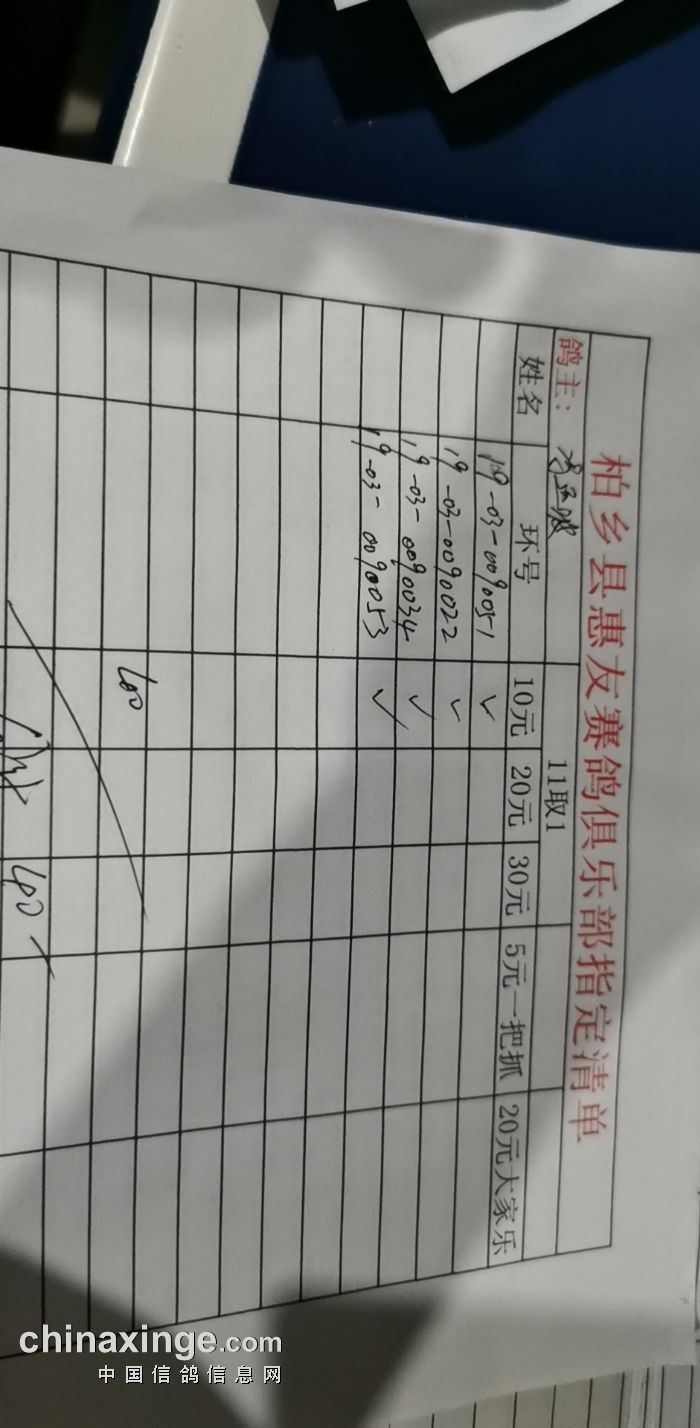 柏乡县惠友赛鸽俱乐部指定清单
鸽主：
11取1
姓名 环号 10元 20元 30元 5元一把抓 20元大家乐
19-03-0090051 ✓
19-03-0090022 ✓
19-03-0090034 ✓
19-03-0090053 ✓
chinaxinge.com
中国信鸽信息网